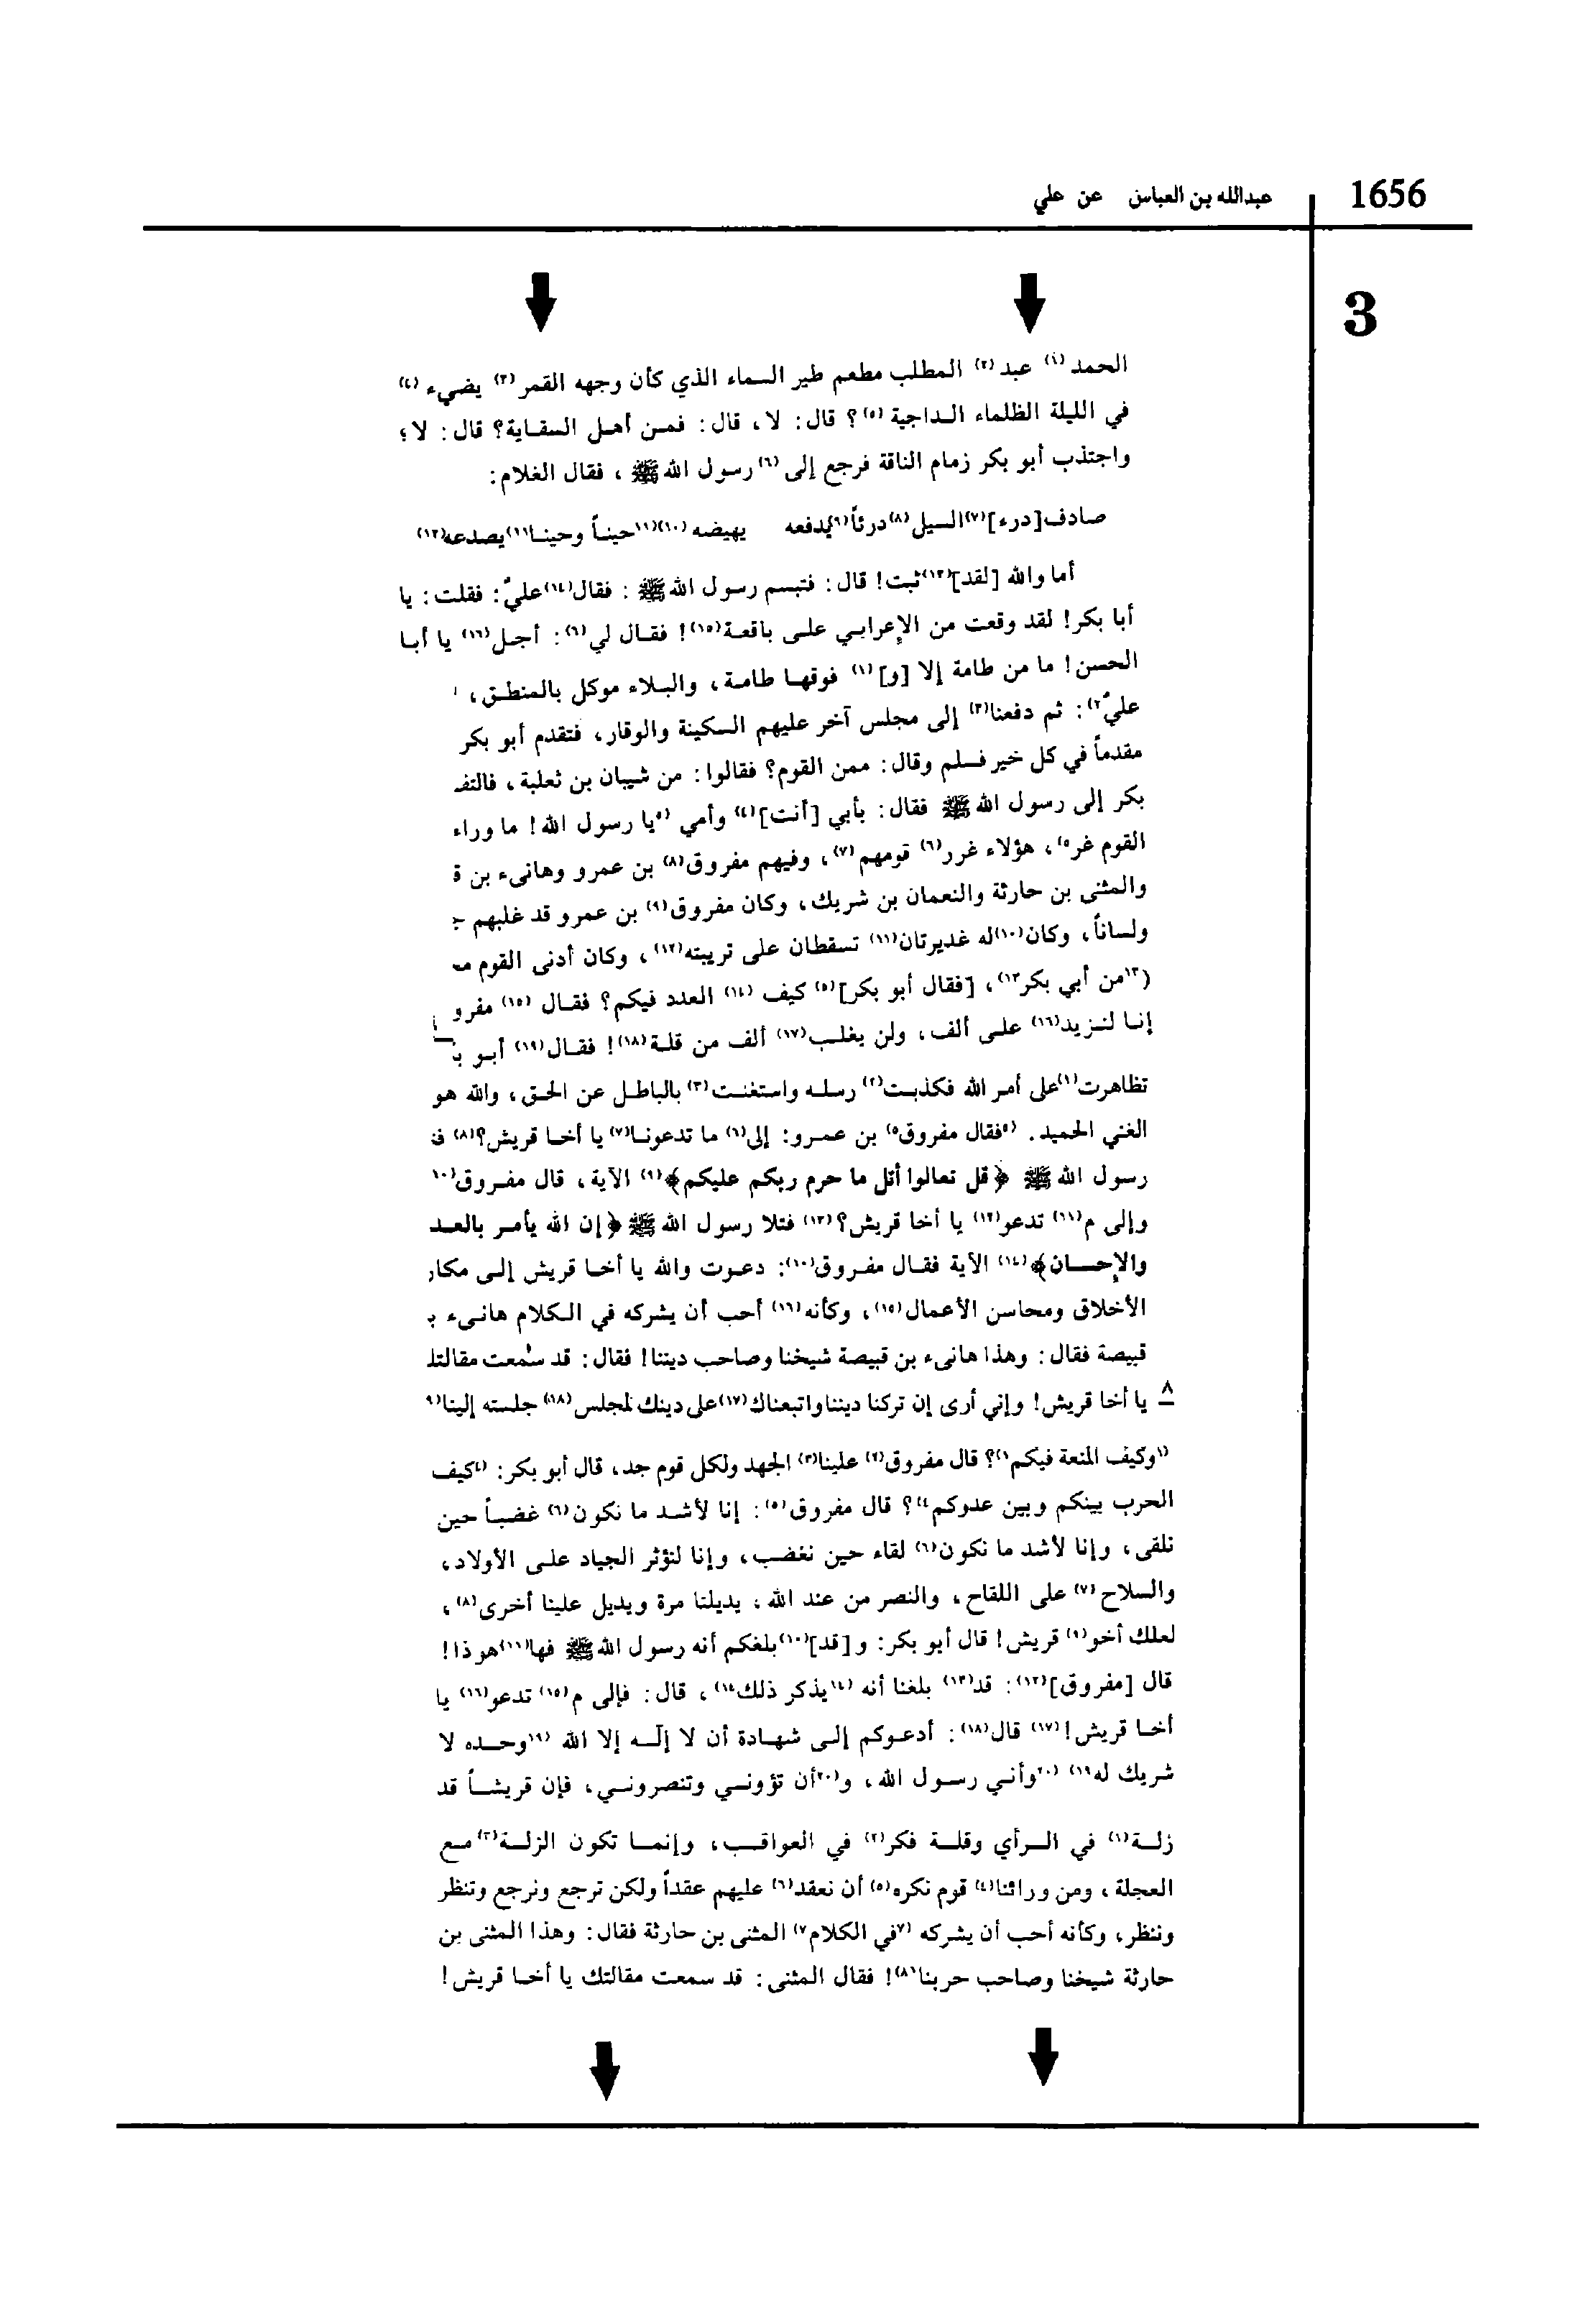 1656
عبدالله بن العباس عن علي
3
الحمد (١) عبد (٢) المطلب مطعم طير السماء الذي كأن وجهه القمر (٣) يضيء (٤)
في الليلة الظلماء الداجية (٥) ؟ قال : لا ، قال : فمن أهل السقاية؟ قال : لا ؛
واجتذب أبو بكر زمام الناقة فرجع إلى (٦) رسول الله ﷺ ، فقال الغلام :
صادف [درء] (٧) السيل (٨) درئاً (٩) يدفعه يهيضه (١٠) (١١ حيناً وحينا ١١) يصدعه (١٢)
أما والله [لقد] (١٣) ثبت ! قال : فتبسم رسول الله ﷺ : فقال (١٤) عليّ : فقلت : يا
أبا بكر ! لقد وقعت من الإعرابي على باقعة (١٥) ! فقال لي (٦) : أجل (١٦) يا أبا
الحسن ! ما من طامة إلا [و] (١) فوقها طامة ، والبلاء موكل بالمنطق ،
عليّ ٢) : ثم دفعنا (٣) إلى مجلس آخر عليهم السكينة والوقار ، فتقدم أبو بكر
مقدماً في كل خير فسلم وقال : ممن القوم؟ فقالوا : من شيبان بن ثعلبة ، فالتف
بكر إلى رسول الله ﷺ فقال : بأبي [أنت] (٤) وأمي (٥ يا رسول الله ! ما وراء
القوم غر ٥) ، هؤلاء غرر (٦) قومهم (٧) ، وفيهم مفروق (٨) بن عمرو وهانىء بن ق
والمثنى بن حارثة والنعمان بن شريك ، وكان مفروق (٩) بن عمرو قد غلبهم ج
ولساناً ، وكان (١٠) له غديرتان (١١) تسقطان على تريبته (١٢) ، وكان أدنى القوم مـ
(١٣ من أبي بكر ١٣) ، [فقال أبو بكر] (٥) كيف (١٤) العدد فيكم؟ فقال (١٥) مفرو
إنا لنزيد (١٦) على ألف ، ولن يغلب (١٧) ألف من قلة (١٨) ! فقال (١٩) أبو بـ
تظاهرت (١) على أمر الله فكذبت (٢) رسله واستغنت (٣) بالباطل عن الحق ، والله هو
الغني الحميد . (٥ فقال مفروق ٥) بن عمرو : إلى (٦) ما تدعونا (٧) يا أخا قريش؟ (٨) فـ
رسول الله ﷺ ﴿قل تعالوا أتل ما حرم ربكم عليكم﴾ (٩) الآية ، قال مفروق (١٠
وإلى م (١١) تدعو (١٢) يا أخا قريش؟ (١٣) فتلا رسول الله ﷺ ﴿إن الله يأمر بالعد
والإحسان﴾ (١٤) الآية فقال مفروق (١٠) : دعوت والله يا أخا قريش إلى مكار
الأخلاق ومحاسن الأعمال (١٥) ، وكأنه (١٦) أحب أن يشركه في الكلام هانىء بـ
قبيصة فقال : وهذا هانىء بن قبيصة شيخنا وصاحب ديننا ! فقال : قد سمعت مقالتك
٨ يا أخا قريش ! وإني أرى إن تركنا ديننا واتبعناك (١٧) على دينك لمجلس (١٨) جلسته إلينا (٩
(١ وكيف المنعة فيكم ١) ؟ قال مفروق (٢) علينا (٣) الجهد ولكل قوم جد ، قال أبو بكر : (٤ كيف
الحرب بينكم وبين عدوكم ٤) ؟ قال مفروق (٥) : إنا لأشد ما نكون (٦) غضباً حين
نلقى ، وإنا لأشد ما نكون (٦) لقاء حين نغضب ، وإنا لنؤثر الجياد على الأولاد ،
والسلاح (٧) على اللقاح ، والنصر من عند الله ، يديلنا مرة ويديل علينا أخرى (٨) ،
لعلك أخو (٩) قريش ! قال أبو بكر : و [قد] (١٠) بلغكم أنه رسول الله ﷺ فها (١١) هو ذا !
قال [مفروق] (١٢) : قد (١٣) بلغنا أنه (١٤ يذكر ذلك ١٤) ، قال : فإلى م (١٥) تدعو (١٦) يا
أخا قريش ! (١٧) قال (١٨) : أدعوكم إلى شهادة أن لا إله إلا الله (١٩ وحده لا
شريك له ١٩) (٢٠ وأني رسول الله ، و ٢٠) أن تؤوني وتنصروني ، فإن قريشاً قد
زلة (١) في الرأي وقلة فكر (٢) في العواقب ، وإنما تكون الزلة (٣) مع
العجلة ، ومن ورائنا (٤) قوم نكره (٥) أن نعقد (٦) عليهم عقداً ولكن ترجع ونرجع وتنظر
وننظر ، وكأنه أحب أن يشركه (٧ في الكلام ٧) المثنى بن حارثة فقال : وهذا المثنى بن
حارثة شيخنا وصاحب حربنا (٨) ! فقال المثنى : قد سمعت مقالتك يا أخا قريش !